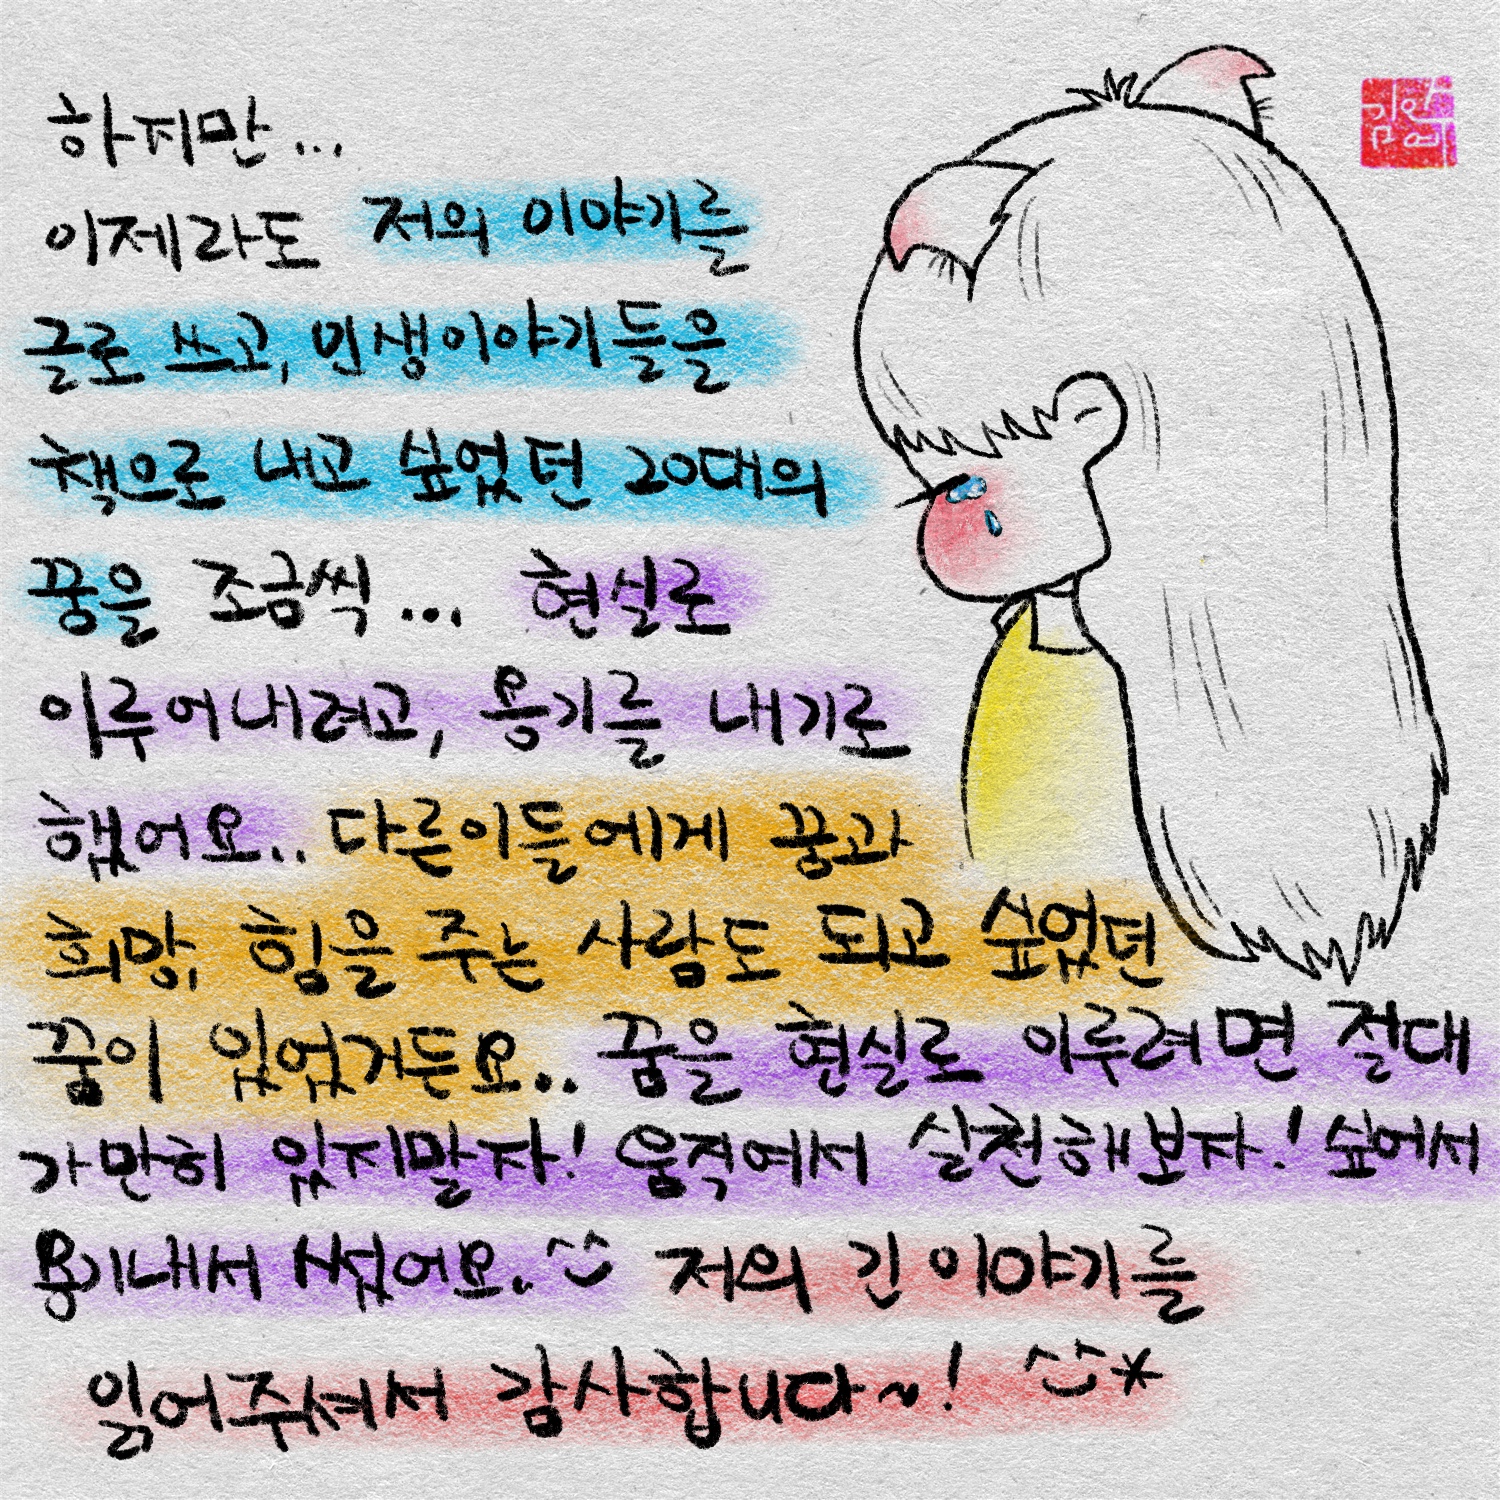 하지만...
이제라도 저의 이야기를
글로 쓰고, 인생이야기들을
책으로 내고 싶었던 20대의
꿈을 조금씩... 현실로
이루어내려고, 용기를 내기로
했어요.. 다른이들에게 꿈과
희망, 힘을 주는 사람도 되고 싶었던
꿈이 있었거든요.. 꿈을 현실로 이루려면 절대
가만히 있지말자! 움직여서 실천해보자.! 숲에서
용기내서 썼어요.. ^^
저의 긴 이야기를
읽어주셔서 감사합니다~! ^^*